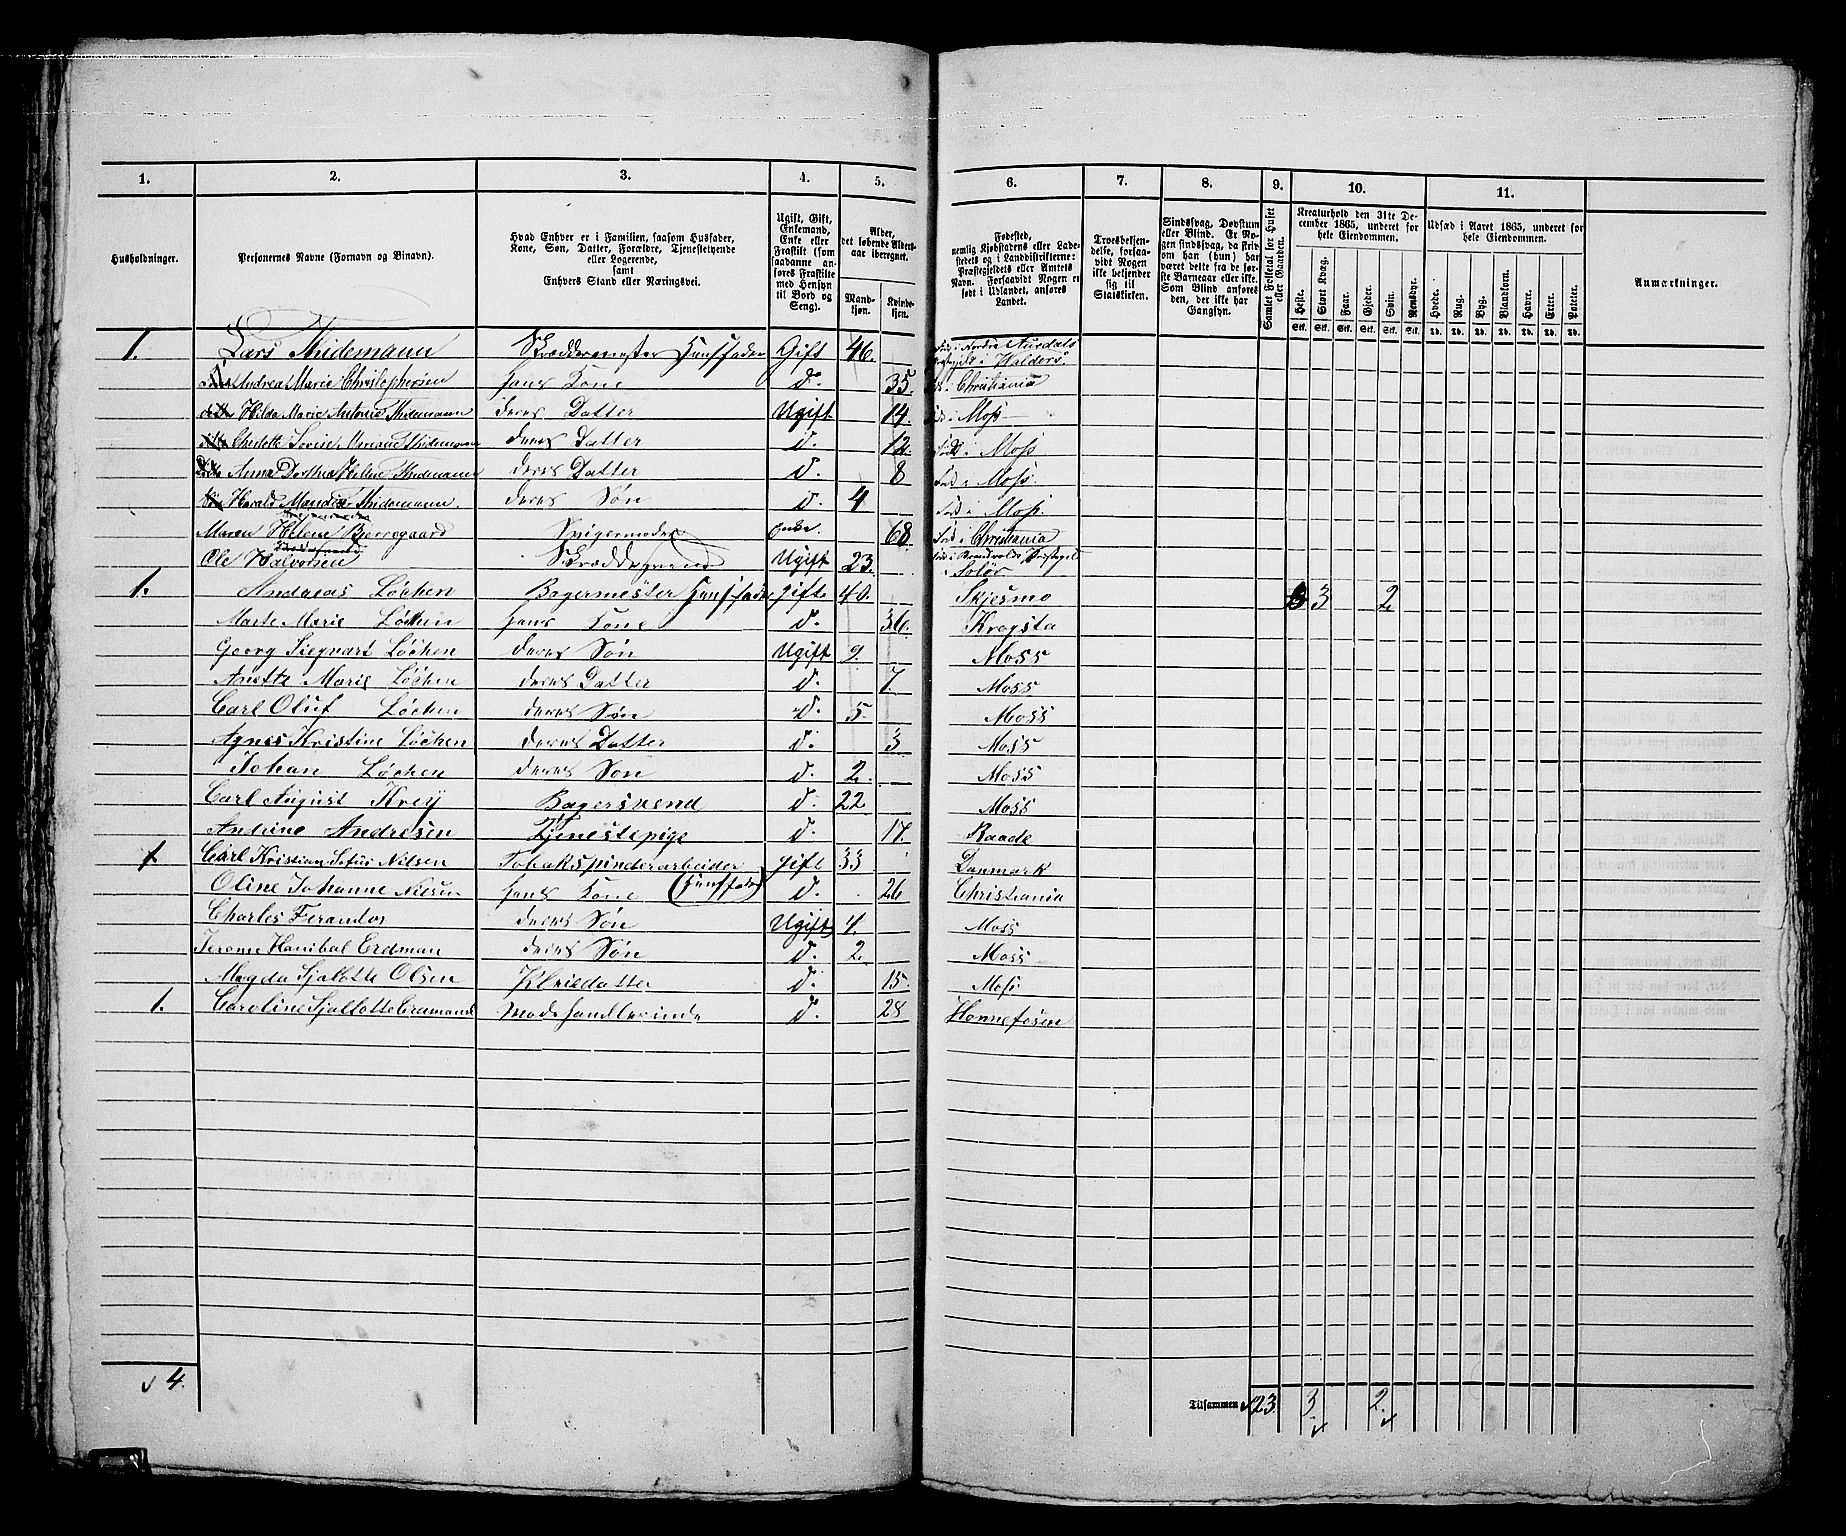 1.
2.
3.
4.
5.
6.
7.
8.
9.
10.
11.
Husholdninger.
Personernes Navne (Fornavn og Binavn).
Hvad Enhver er i Familien, saasom Husfader,
Kone, Søn, Datter, Forældre, Tjenestetyende
eller Logerende,
samt
Enhvers Stand eller Næringsvei.
Ugift, Gift,
Enkemand,
Enke eller
Fraskilt (som
saadanne an-
føres Fraskilte
med Hensyn
til Bord og
Seng).
Alder,
det løbende Alders-
aar iberegnet.
Mand-
kjøn.
Kvinde-
kjøn.
Fødested,
nemlig Kjøbstadens eller Lade-
stedets og i Landdistrikterne:
Præstegjeldets eller Amtets
Navn. Forsaavidt Nogen er
født i Udlandet, anføres
Landet.
Troesbekjen-
delse, forsaa-
vidt Nogen
ikke bekjender
sig til
Statskirken.
Sindssvag, Døvstum
eller Blind. Er No-
gen sindssvag, da skriv
om han (hun) har
været dette fra de før-
ste Barneaar eller ikke.
Som Blind anføres
den, der ikke har
Gangsyn.
Samlet Folketal for Huset
eller Gaarden.
Kreaturhold den 31te De-
cember 1865, underet for
hele Eiendommen.
Heste. Stort Kvæg. Faar. Gjeder. Svin. Rensdyr.
Stk. Stk. Stk. Stk. Stk. Stk.
Udsæd i Aaret 1865, underet for
hele Eiendommen.
Hvede. Rug. Byg. Blandkorn. Havre. Erter. Poteter.
Td. Td. Td. Td. Td. Td. Td.
Anmærkninger.
1. Lars Thidemann Skræddermester Huusfader Gift 46. Født i Nordre Aurdals Præstegjeld i Walders
Andrea Marie Christophersen hans Kone d. 35. Christiania
Hilda Marie Antonie Thidemann deres Datter Ugift 14. Født i Moss
Lovise Thidemann deres Datter d. 12. Født i Moss
Anna Dorthea Helene Thidemann deres Datter d. 8 Født i Moss.
Harald Thidemann deres Søn d. 4 Født i Moss.
Maren Helene Bjerregaard Svigermoder Enke. 68 Født i Christiania
Ole Halvorsen Skræddersvend Ugift 23. Præstegjeld i Solør
1. Andreas Løchen Bagermester Huusfader gift 40. Skjesmo 3 2
Marte Marie Løchen hans Kone d. 36. Krogsta
Georg Siegvart Løchen deres Søn Ugift 9. Moss
Anette Marie Løchen deres Datter d. 7. Moss
Carl Oluf Løchen deres Søn d. 5. Moss
Agnes Kristine Løchen deres Datter d. 3 Moss
Johan Løchen deres Søn d. 2. Moss
Carl August Krey Bagersvend d. 22. Moss
Andrine Andresen Tjenestepige d. 17. Raade
1 Carl Kristian Nilsen Tobakspinderarbeider gift 33 Danmark
(Huusfader)
Oline Johanne Nilsen hans Kone d. 26 Christiania
Charles Ferandos deres Søn Ugift 4. Moss
Jerome Hanibal Erdman deres Søn d. 2. Moss
Magda Sjalotte Olsen Pleiedatter d. 15. Moss
1. Caroline Sjallotte Modehandlerinde d. 28 Hønnefosen
4.
Tilsammen 23 3 2